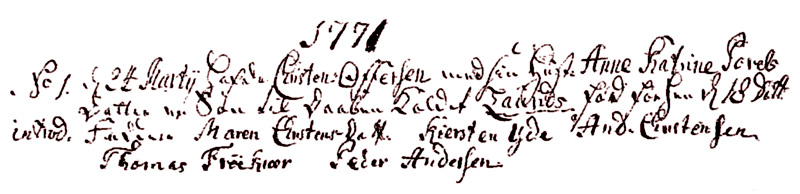 1771
No 1. d 24 Martij Hafde Christen Offersen med sin Hustr. Anne Katrine Povels
Datter en Søn til Daaben Kaldet fød d 18 Dito
introd. Maren Christens Datt. Kiersten Yde And. Christensen
Thomas Peder Andersen.